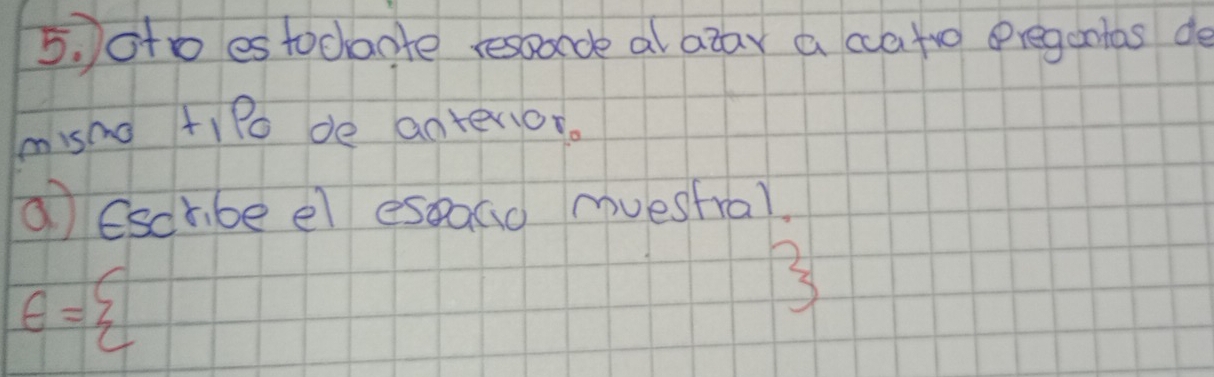 5.) otro estodiante responde al azar a cuatro Pregontas de
mismo tipo de anterior.
a) Escribe el espacio muestral.
E = { }